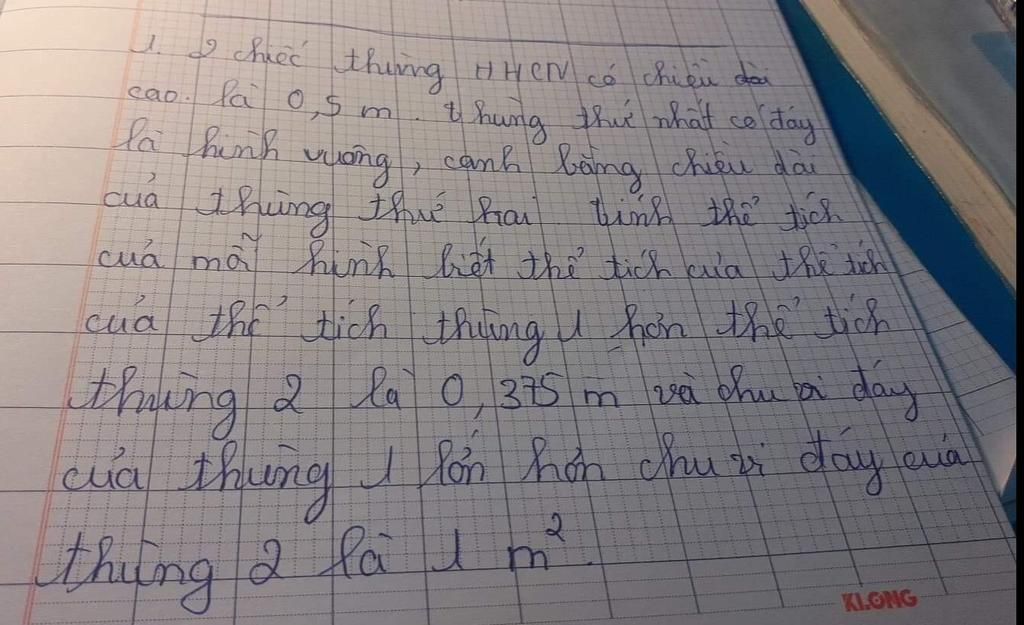 1. 2 chiếc thùng HHCN có chiều dài
cao. là 0,5 m. thùng thứ nhất có đáy
là hình vuông, cạnh bằng chiều dài
của thùng thứ hai tính thể tích
của mỗ hình biết thể tích của thể tích
của thể tích thùng 1 hơn thể tích
thùng 2 là 0,375 m và chu vi đáy
của thùng 1 lớn hơn chu vi đáy của
thùng 2 là 1 m²
KLONG